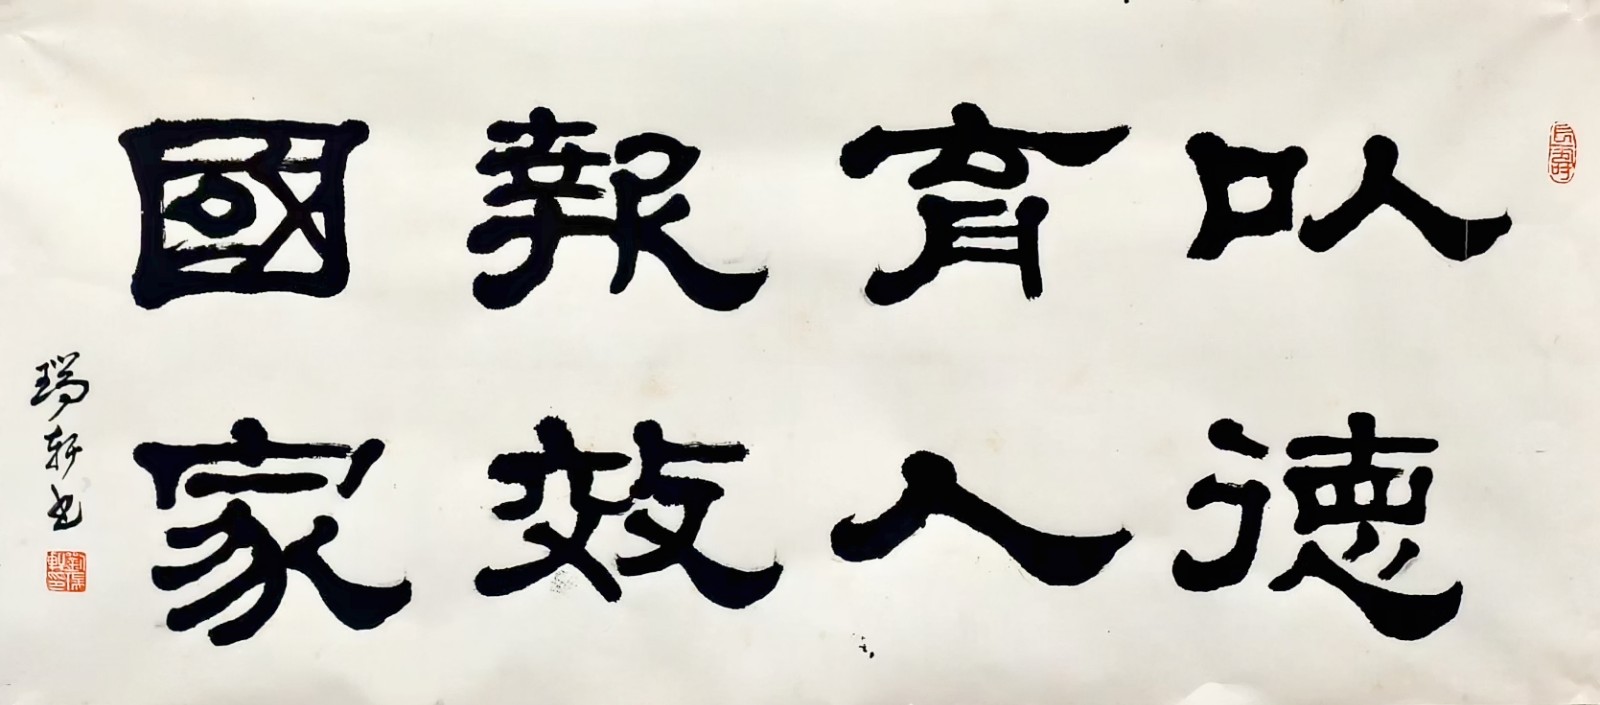 以德
育人
報效
國家
瑞軒书